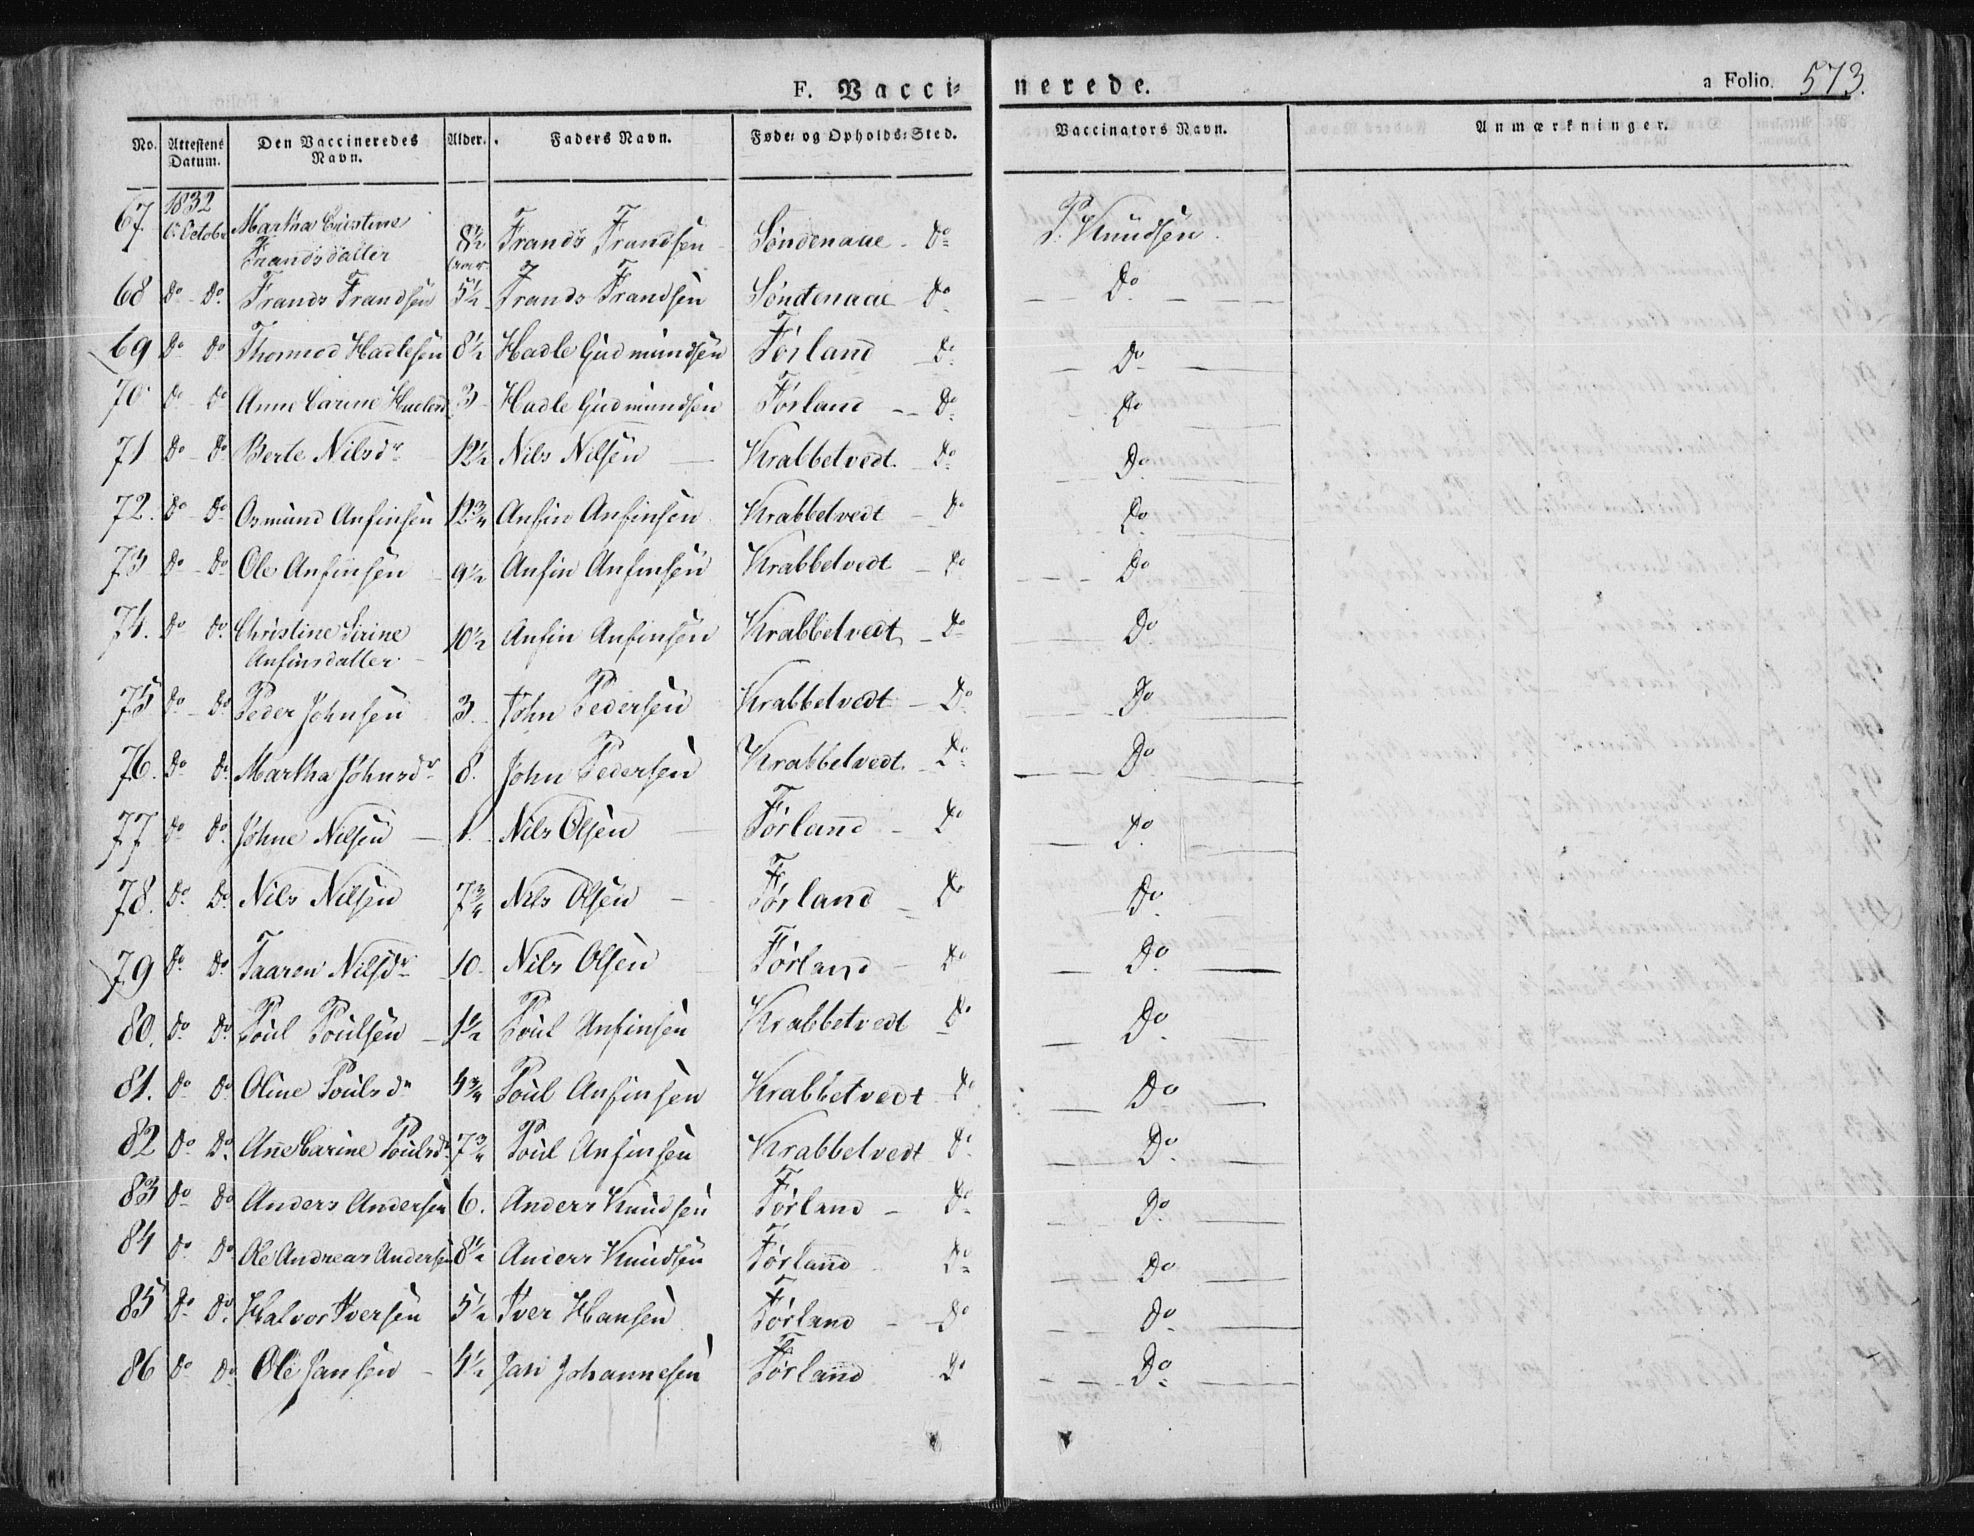 F. Vacci-nerede.
a Folio. 573.
No. Attestens Datum. Den Vaccineredes Navn. Alder. Faders Navn. Føde- og Opholds-Sted. Vaccinators Navn. Anmærkninger.
1832
67. October Martha Cristine Frandsdatter 8½ aar Frands Frandsen Søndenaae - Do P. Knudsen.
68 Do - Do. Frands Frandsen 5½ Frands Frandsen Søndenaae - Do Do.
69 Do Do Thormod Hadlesen 8½ Hadle Gudmundsen Førland Do Do
70 Do - Do Anne Carine Hadlesd 3 Hadle Gudmundsen Førland - Do Do
71 Do - Do Berte Nilsdr 12½ Nils Nilsen Krabbetvedt. Do Do
72. Do - Do Osmund Anfinsen 12¾ Anfin Anfinsen Krabbetvedt - Do Do.
73 Do - Do Ole Anfinsen 9½ Anfin Anfinsen Krabbetvedt - Do Do
74. Do Do. Christine Sirine Anfinsdatter 10½ Anfin Anfinsen Krabbetvedt - Do Do
75 Do - Do Peder Johnsen 3. John Pedersen Krabbetvedt - Do Do
76. Do Do Martha Johnsdr 8. John Pedersen Krabbetvedt. Do Do
77 Do Do. Johne Nilsen 1. Nils Olsen Førland - Do Do.
78. Do. Do. Nils Nilsen 7¾ Nils Olsen Førland - Do Do.
79 Do Do Taaren Nilsdr 10. Nils Olsen Førland - Do Do.
80. Do Do Poul Poulsen 1½ Poul Anfinsen Krabbetvedt Do Do.
81. Do Do Oline Poulsdr 4¾ Poul Anfinsen Krabbetvedt Do Do
82 Do Do. Ane Carine Poulsdr 7¾ Poul Anfinsen Krabbetvedt Do Do.
83 Do Do Anders Andersen 6. Anders Knudsen Førland - Do Do.
84 Do Do Ole Andreas Andersen 8½ Anders Knudsen Førland Do Do
85 Do Do. Halvor Iversen 5½ Iver Hansen Førland - Do Do
86 Do Do Ole Jansen - 4½ Jan Johannesen Førland Do Do